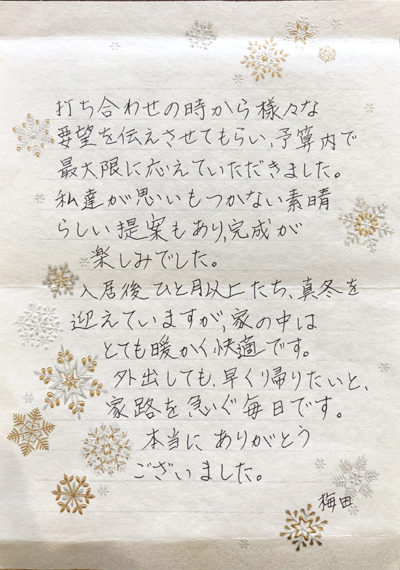 打ち合わせの時から様々な
要望を伝えさせてもらい、予算内で
最大限に応えていただきました。
私達が思いもつかない素晴
らしい提案もあり、完成が
楽しみでした。
入居後ひと月以上たち、真冬を
迎えていますが、家の中は
とても暖かく快適です。
外出しても、早くり帰りたいと、
家路を急いぐ毎日です。
本当にありがとう
ございました。
梅田